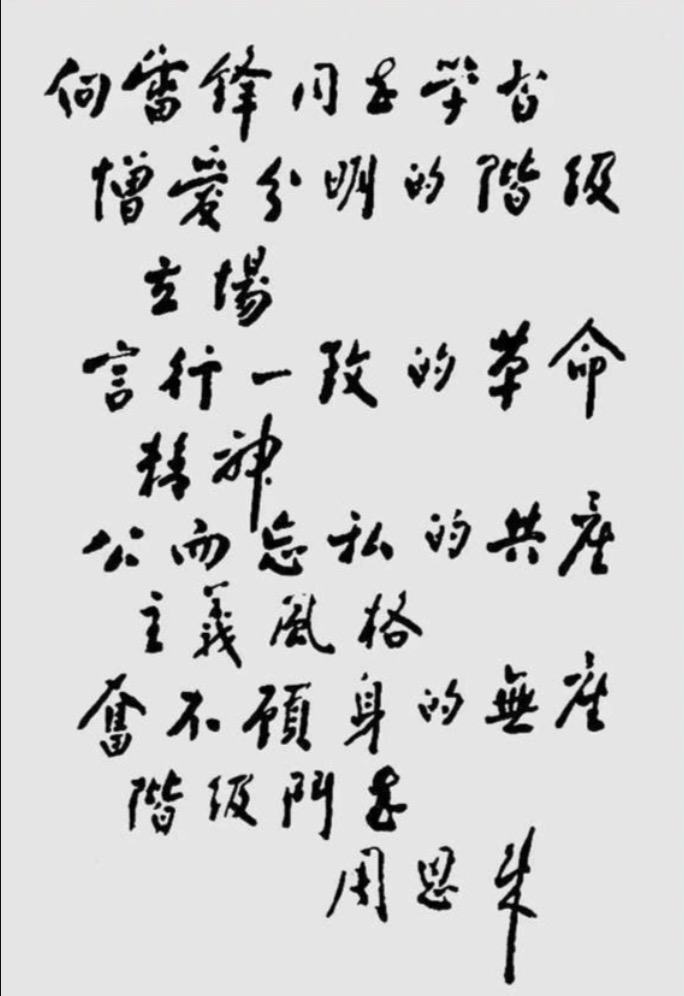 向雷锋同志学习
憎爱分明的階级
立場
言行一致的革命
精神
公而忘私的共产
主義風格
奮不顧身的無产
階级鬥志
周恩来